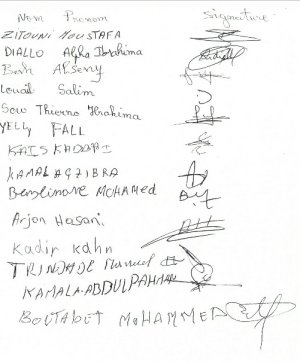 Nom Prenom Signature
ZITOUNI MOUSTAFA
DIALLO Alpha Ibrahima
Bah Alseny
Loual Salim
Sow Thierno Ibrahima
YELLY FALL
KAIS KADDRI
KAMAL AGZIBRA
MOHAMED
Arjon Hasani
Kadir Kahn
TRINDADE Manuel
KAMALA-ABDULPAHMAN
BOUTABET MOHAMMED